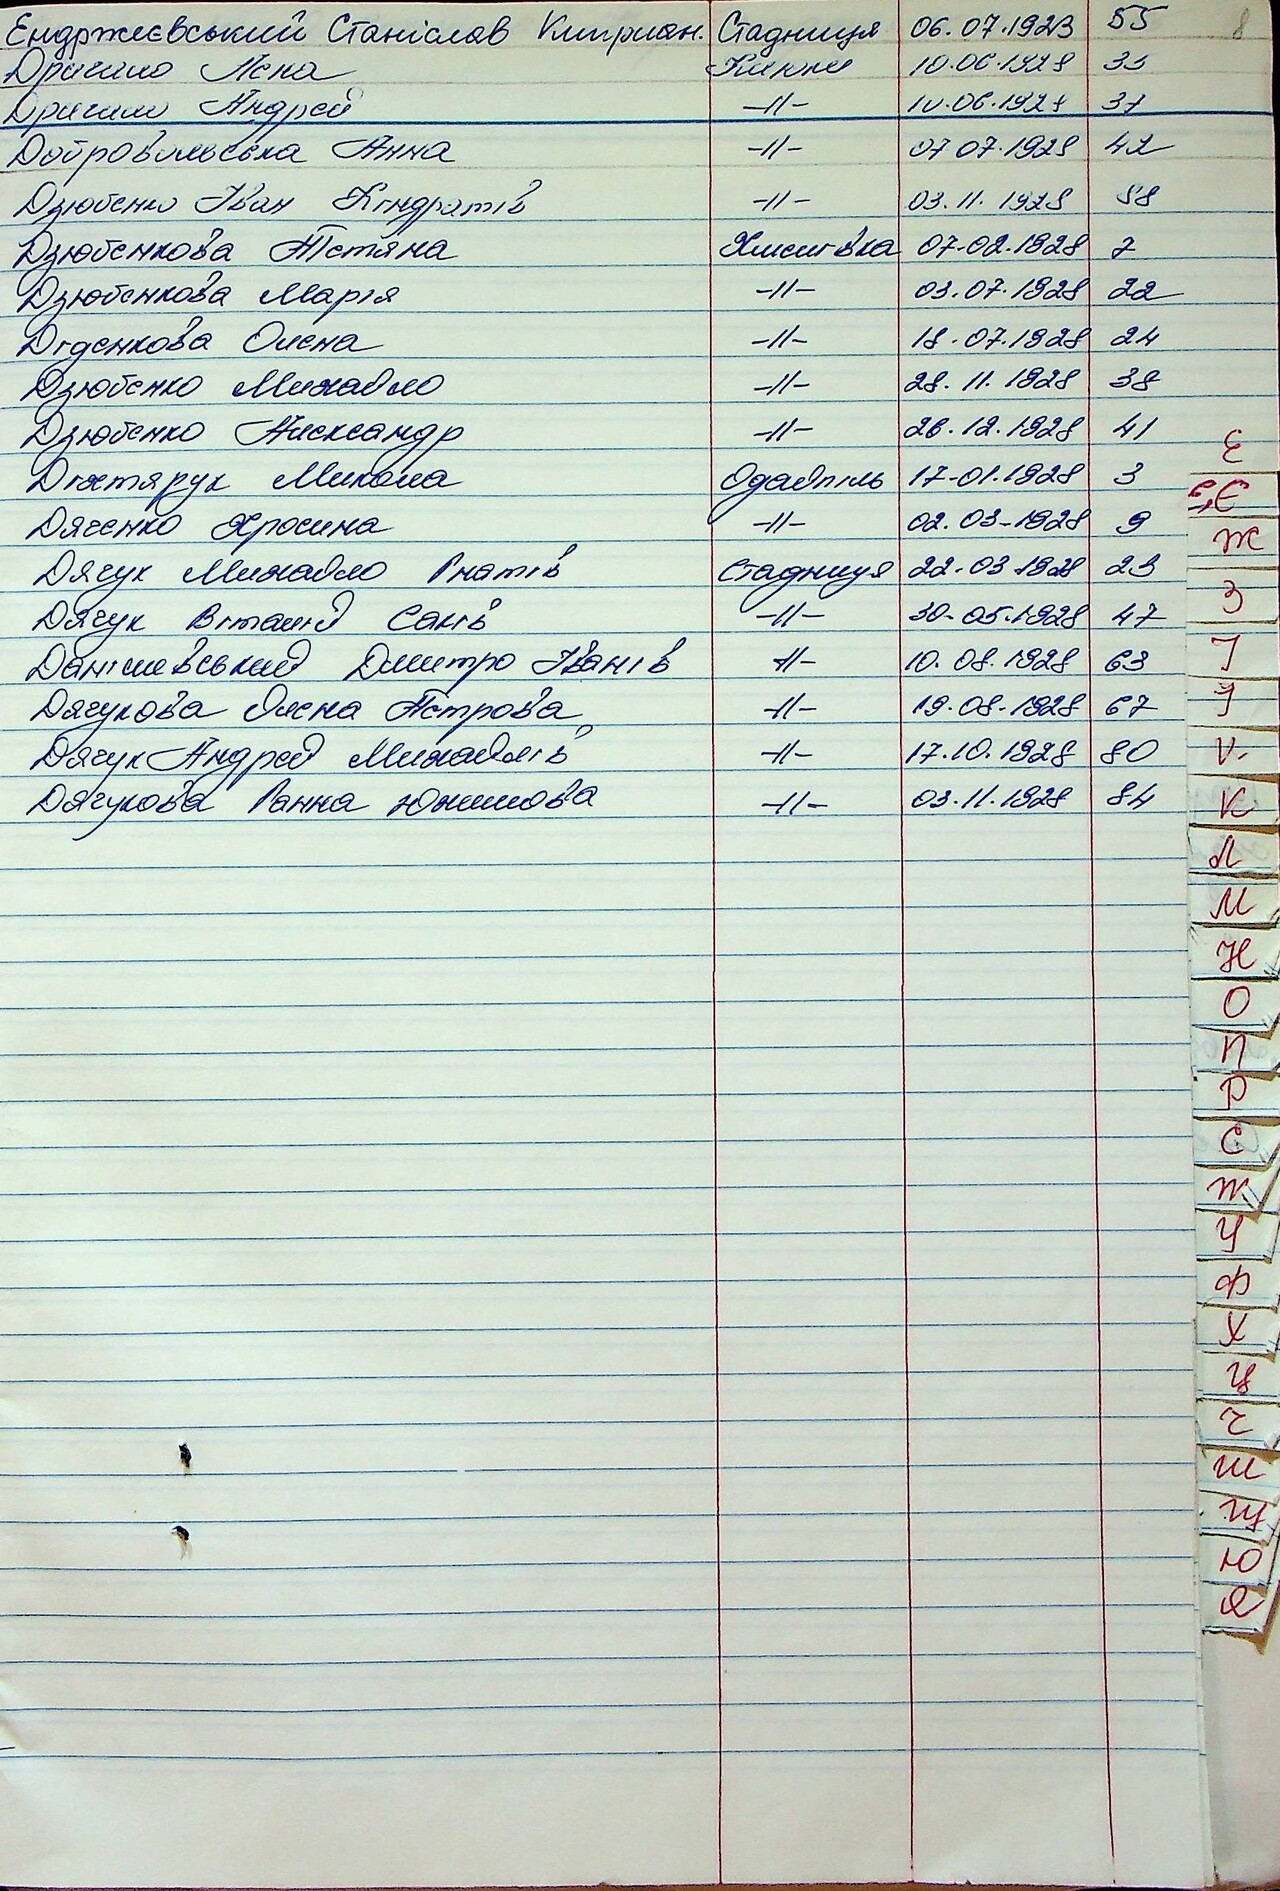 Ендржиєвський Станіслав Киприян. Стадниця 06.07.1923 55 8
Дригало Ясна 10.06.1928 35
Дригало Андрей -//- 10.06.1928 37
Добровольська Анна -//- 07.07.1928 42
Дзюбенко Іван Кіндратів -//- 03.11.1928 58
Дзюбенкова Тетяна Хмелівка 07.02.1928 7
Дзюбенкова Марія -//- 03.07.1928 22
Діденкова Олена -//- 18.07.1928 24
Дзюбенко Михайло -//- 28.11.1928 38
Дзюбенко Александр -//- 26.12.1928 41
Діхтярук Микола Одайпіль 17.01.1928 3
Дяченко Фросина -//- 02.03.1928 9
Дячук Михайло Гнатів Стадниця 22.03.1928 23
Дячук Віталій Саків -//- 30.05.1928 47
Данілевський Дмитро Іванів -//- 10.08.1928 63
Дячукова Олена Петрова -//- 19.08.1928 67
Дячук Андрей Михайлів -//- 17.10.1928 80
Дячукова Ганна Юхимова -//- 03.11.1928 84
Е
Є
Ж
З
І
Ї
К
Л
М
Н
О
П
Р
С
Т
У
Ф
Х
Ц
Ч
Ш
Щ
Ю
Я